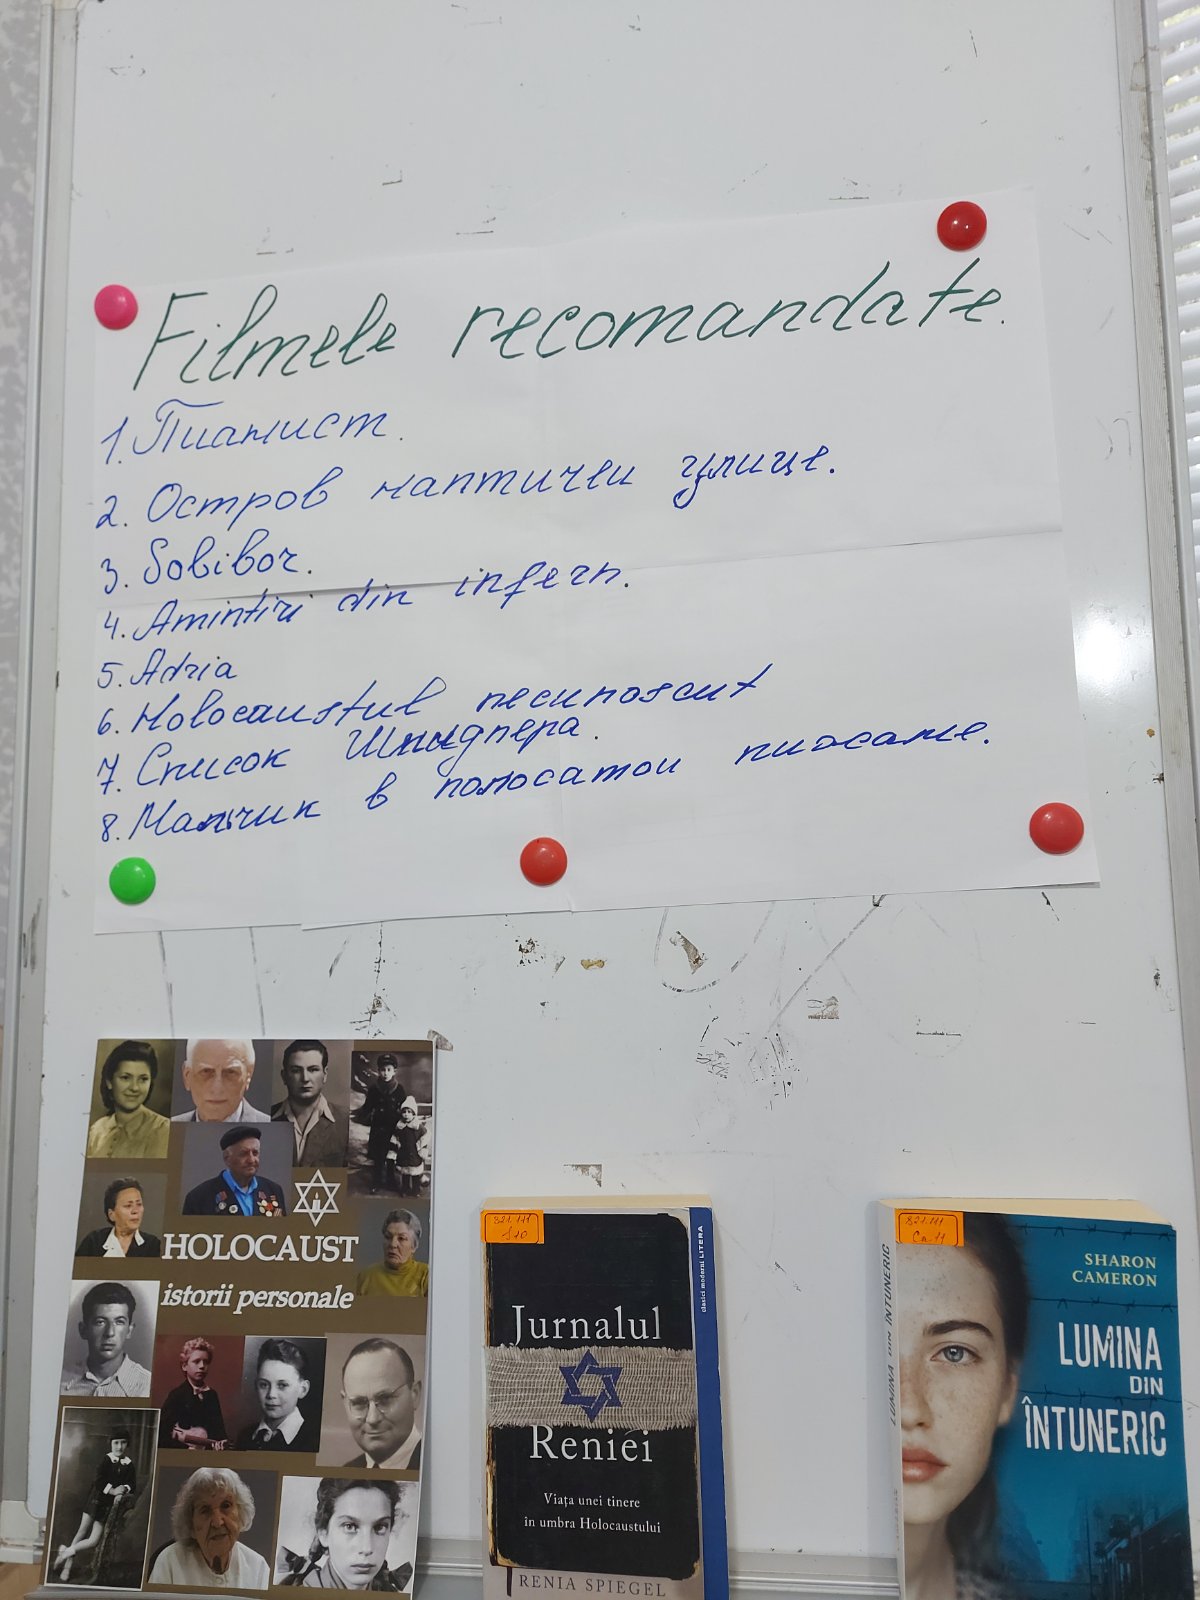 Filmele recomandate.
1. Пианист.
2. Остров наптичеи улице.
3. Sobibor.
4. Amintiri din infern.
5. Adria
6. Holocaustul necunoscut
7. Список Шиндлера.
8. Мальчик в полосатои пижаме.
HOLOCAUST
istorii personale
821.111
S10
Jurnalul
Reniei
Viața unei tinere
în umbra Holocaustului
RENIA SPIEGEL
clasici moderni LITERA
821.111
LUMINA DIN ÎNTUNERIC
SHARON
CAMERON
LUMINA
DIN
ÎNTUNERIC